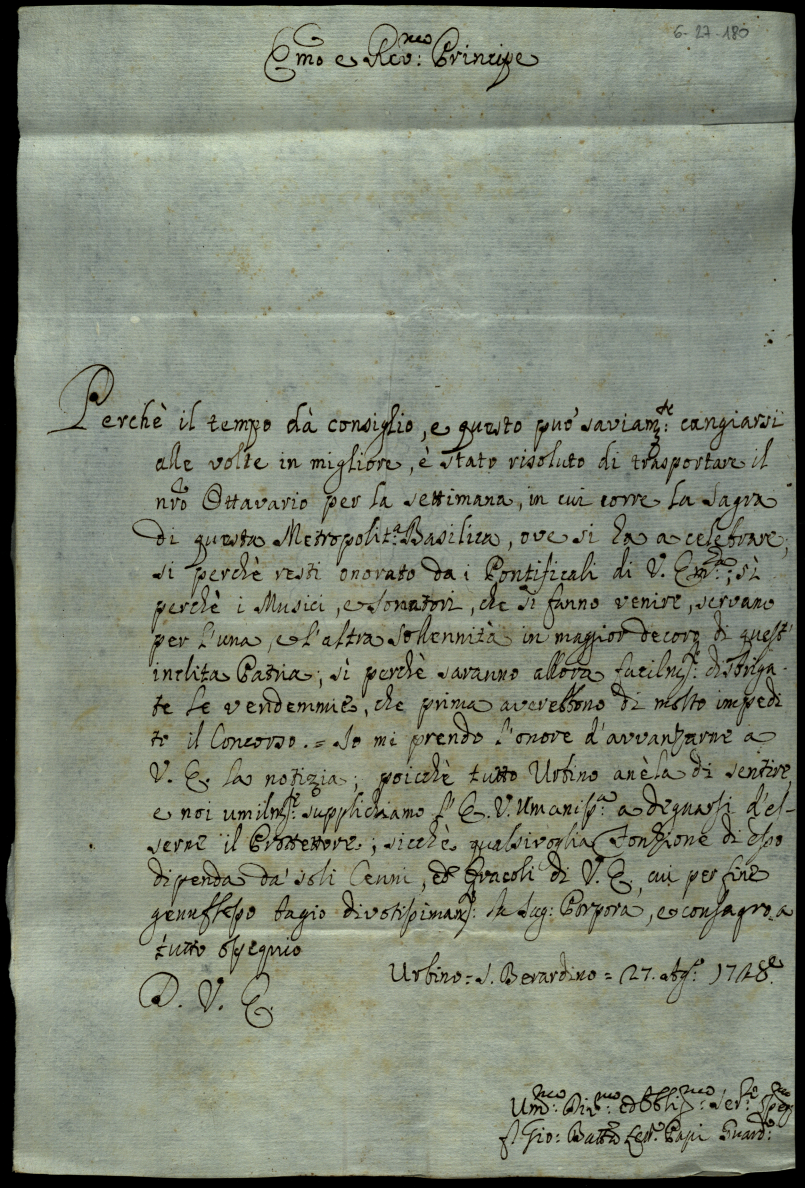 6-27-180
Emo e Rev:mo Principe
Perchè il tempo dà consiglio, e questo può saviam:te cangiarsi
alle volte in migliore, è stato risoluto di trasportare il
nrō Ottavario per la settimana, in cui corre la Sagra
di questa Metropolit:a Basilica, ove si ha a celebrare;
si perchè resti onorato da i Pontificali di V. Em:za; sì
perchè i Musici, e Sonatori, che si fanno venire, servano
per l'una, e l'altra solennità in maggior decoro di quest'
inclita Patria; sì perchè saranno allora facilm:te disbriga-
te le vendemmie, che prima averebbono di molto impedi
to il Concorso. = Io mi prendo l'onore d'avvanzarne a
V. E. la notizia; poicchè tutto Urbino anèla di sentire,
e noi umilm:te supplichiamo l'E. V. Umaniss:a a degnarsi d'es-
serne il Protettore; sicchè qualsivoglia Fonzione di Esso
dipenda da' soli Cenni, ed Oracoli di V. E., cui per fine
genuflesso bagio divotissimam:te la Sag: Porpora, e consagro a
tutto ossequio
D. V. E.
Urbino = S. Berardino = 27. Ag:o 1748.
Um:mo Div:mo ed Obbli:mo Ser:e
f. Gio: Batta Papi Guard:o